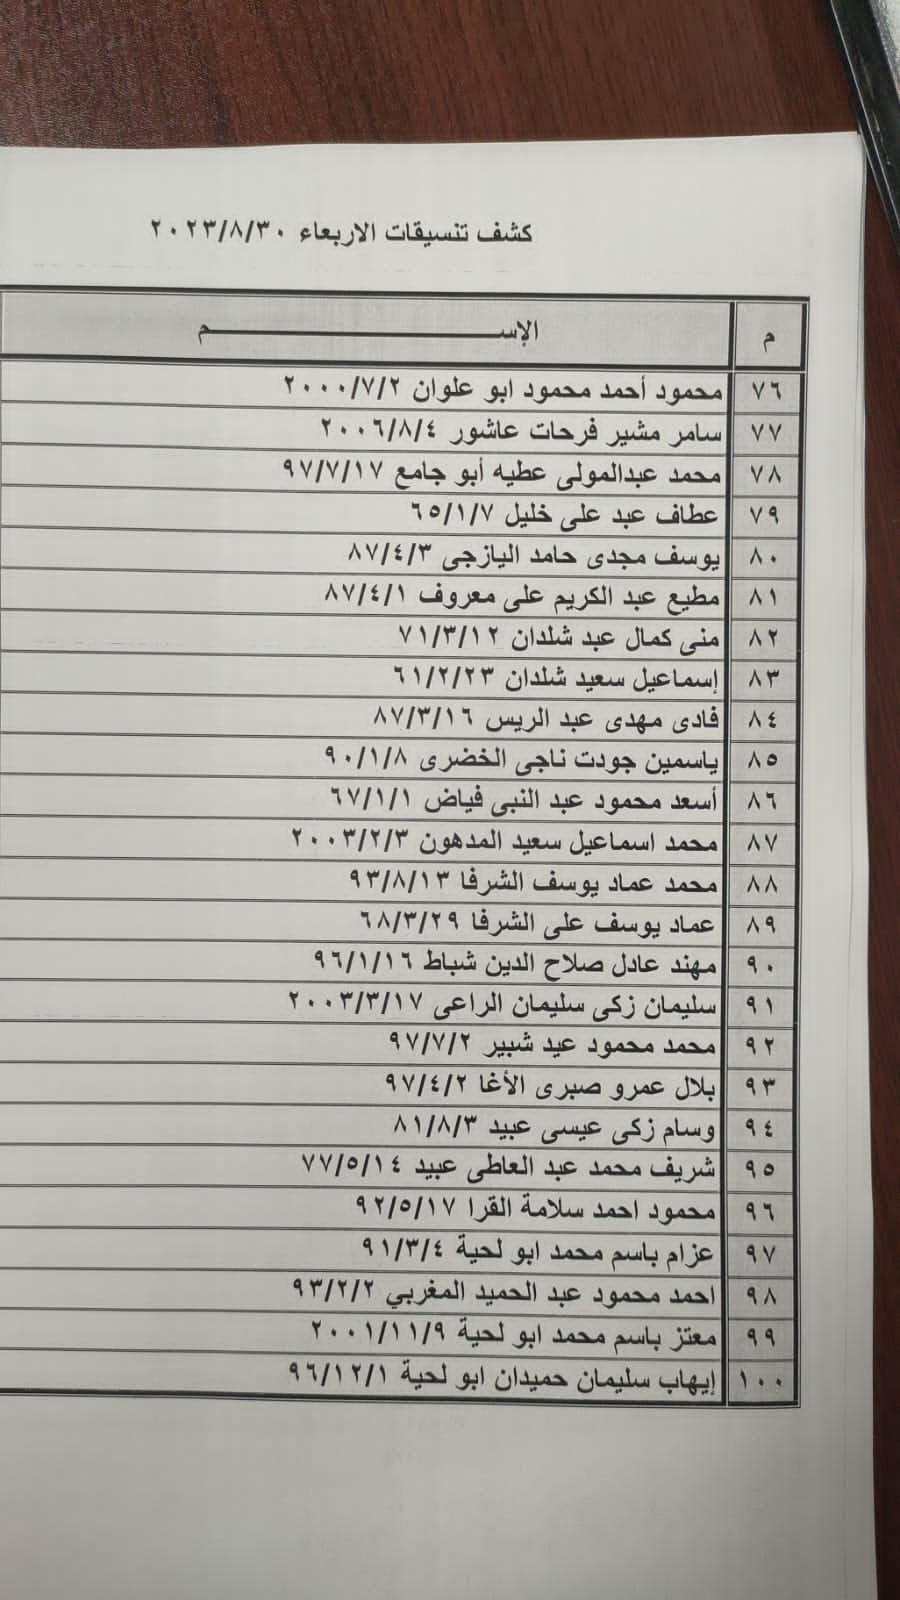 كشف تنسيقات الاربعاء ٢٠٢٣/٨/٣٠
م الإســــــم
٧٦ محمود أحمد محمود ابو علوان ٢٠٠٠/٧/٢
٧٧ سامر مشير فرحات عاشور ٢٠٠٦/٨/٤
٧٨ محمد عبدالمولى عطيه أبو جامع ٩٧/٧/١٧
٧٩ عطاف عبد على خليل ٦٥/١/٧
٨٠ يوسف مجدى حامد اليازجى ٨٧/٤/٣
٨١ مطيع عبد الكريم على معروف ٨٧/٤/١
٨٢ منى كمال عبد شلدان ٧١/٣/١٢
٨٣ إسماعيل سعيد شلدان ٦١/٢/٢٣
٨٤ فادى مهدى عبد الريس ٨٧/٣/١٦
٨٥ ياسمين جودت ناجى الخضرى ٩٠/١/٨
٨٦ أسعد محمود عبد النبى فياض ٦٧/١/١
٨٧ محمد اسماعيل سعيد المدهون ٢٠٠٣/٢/٣
٨٨ محمد عماد يوسف الشرفا ٩٣/٨/١٣
٨٩ عماد يوسف على الشرفا ٦٨/٣/٢٩
٩٠ مهند عادل صلاح الدين شباط ٩٦/١/١٦
٩١ سليمان زكى سليمان الراعى ٢٠٠٣/٣/١٧
٩٢ محمد محمود عيد شبير ٩٧/٧/٢
٩٣ بلال عمرو صبرى الأغا ٩٧/٤/٢
٩٤ وسام زكى عيسى عبيد ٨١/٨/٣
٩٥ شريف محمد عبد العاطى عبيد ٧٧/٥/١٤
٩٦ محمود احمد سلامة القرا ٩٢/٥/١٧
٩٧ عزام باسم محمد ابو لحية ٩١/٣/٤
٩٨ احمد محمود عبد الحميد المغربي ٩٣/٢/٢
٩٩ معتز باسم محمد ابو لحية ٢٠٠١/١١/٩
١٠٠ إيهاب سليمان حميدان ابو لحية ٩٦/١٢/١